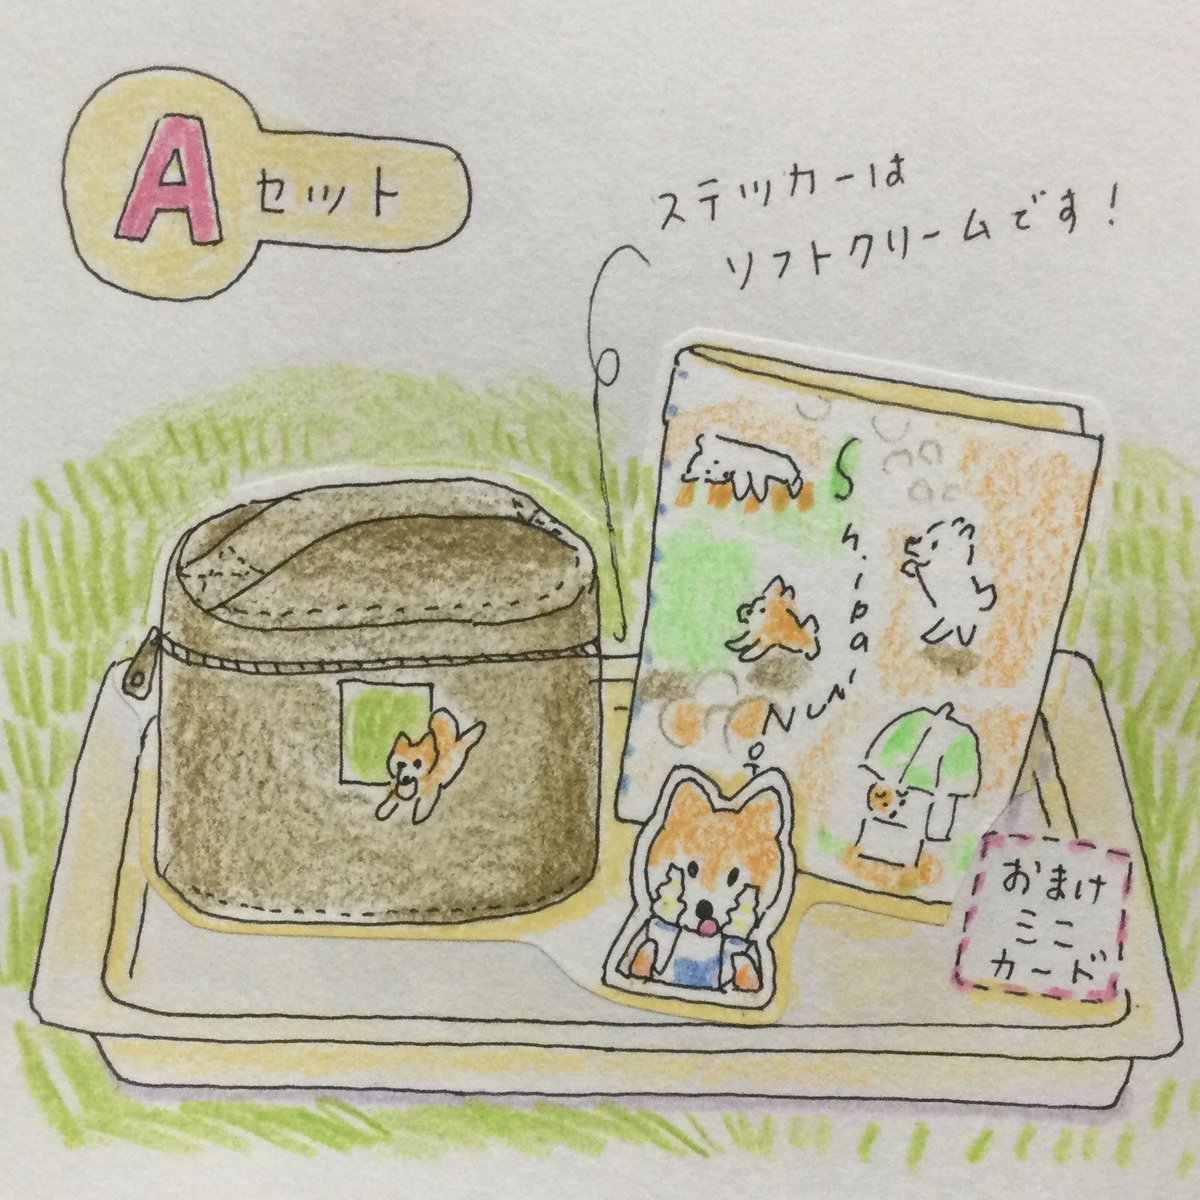 Aセット
ステッカーは
ソフトクリームです!
Shipani
Nuno
おまけ
ミニ
カード